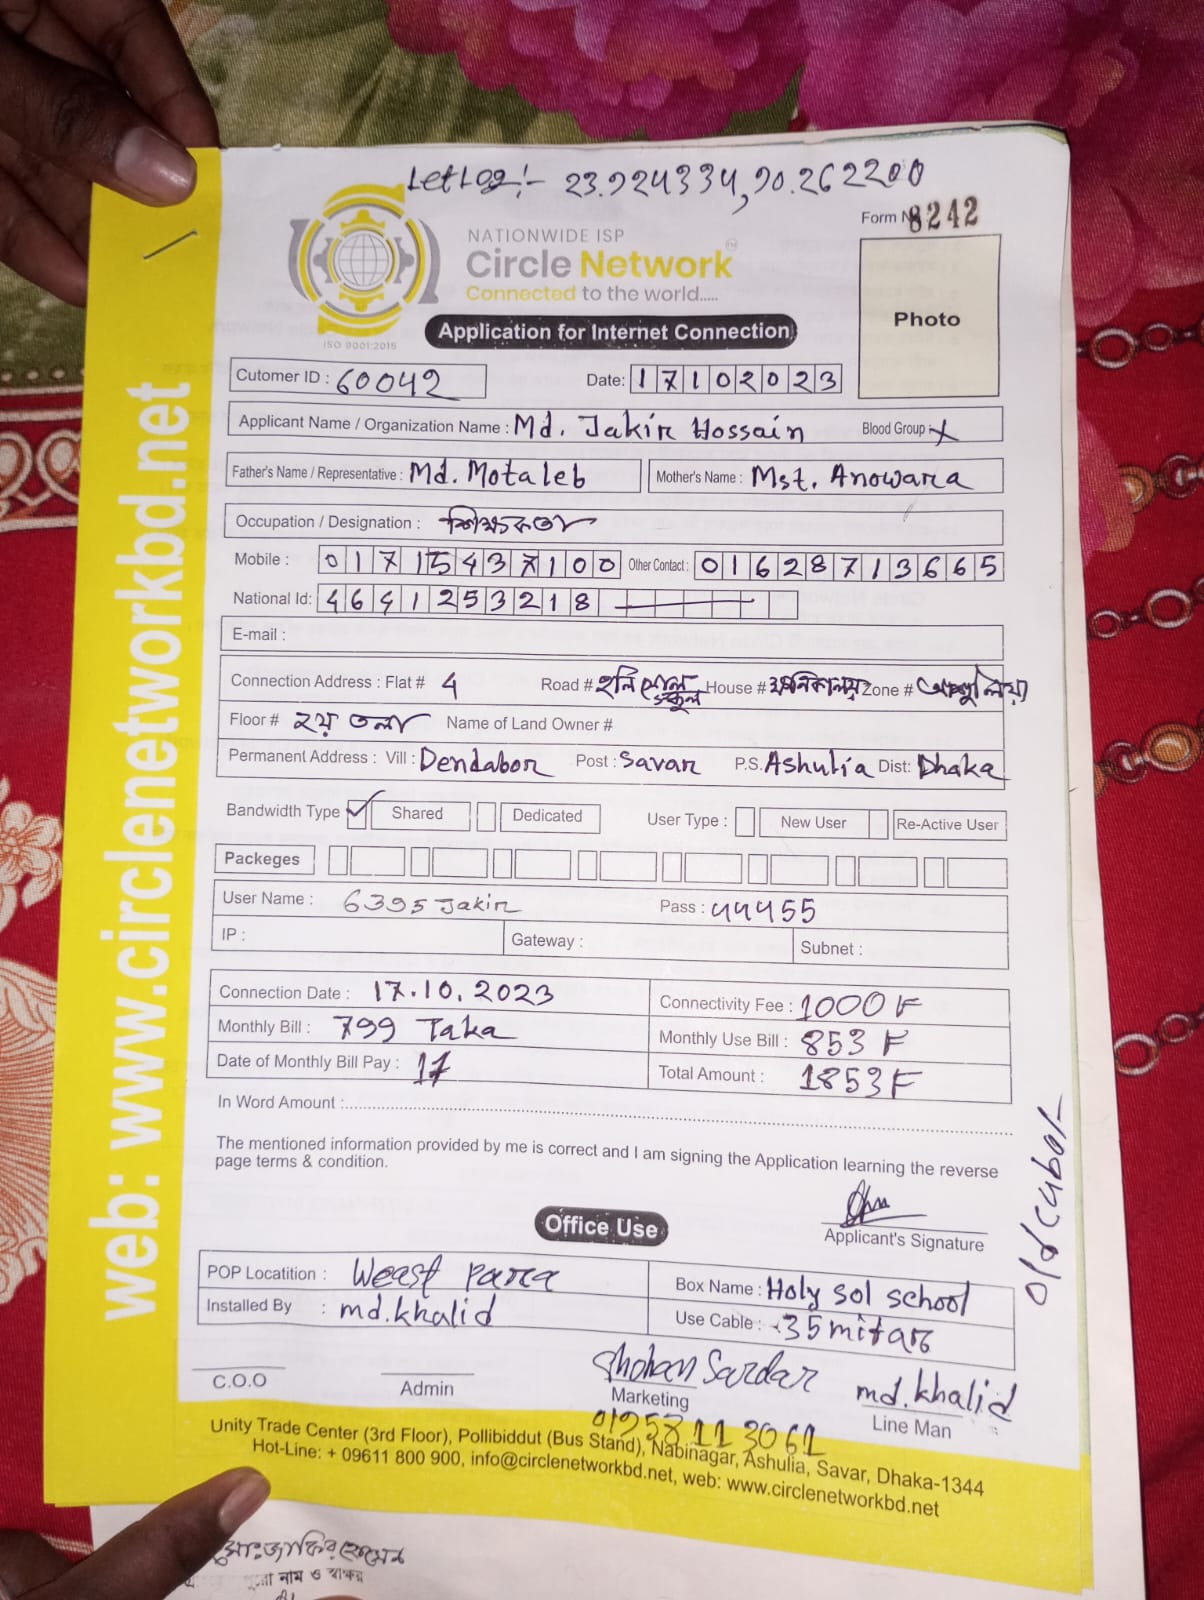 Let Log:- 23.924334,90.262200
Form No 8242
NATIONWIDE ISP
Circle Network
TM
Connected to the world.....
ISO 9001:2015
Application for Internet Connection
Photo
Cutomer ID : 60042
Date: 17102023
Applicant Name / Organization Name : Md. Jakir Hossain
Blood Group
Father's Name / Representative : Md. Motaleb
Mother's Name : Mst. Anowara
Occupation / Designation :
Mobile : 01715437100
Other Contact : 01628713665
National Id: 4641253218
E-mail :
Connection Address : Flat # 4 Road # হলি সোল স্কুল House # Zone # আশুলিয়া
Floor # ২য় তলা Name of Land Owner #
Permanent Address : Vill : Dendabor Post : Savar P.S. Ashulia Dist: Dhaka
Bandwidth Type Shared Dedicated User Type : New User Re-Active User
Packeges
User Name : 6395 Jakir Pass : 44455
IP : Gateway : Subnet :
Connection Date : 17.10.2023
Connectivity Fee : 1000 F
Monthly Bill : 799 Taka
Monthly Use Bill : 853 F
Date of Monthly Bill Pay : 17
Total Amount : 1853 F
In Word Amount :
The mentioned information provided by me is correct and I am signing the Application learning the reverse
page terms & condition.
Applicant's Signature
Office Use
POP Locatition : Weast Parra
Box Name : Holy Sol School
Installed By : md.khalid
Use Cable : 35 mitar
C.O.O
Admin
Shohan Sardar
Marketing
md.khalid
Line Man
Unity Trade Center (3rd Floor), Pollibiddut (Bus Stand), Nabinagar, Ashulia, Savar, Dhaka-1344
Hot-Line: + 09611 800 900, info@circlenetworkbd.net, web: www.circlenetworkbd.net
web: www.circlenetworkbd.net
মোঃ জাকির হোসেন
পুরো নাম ও স্বাক্ষর